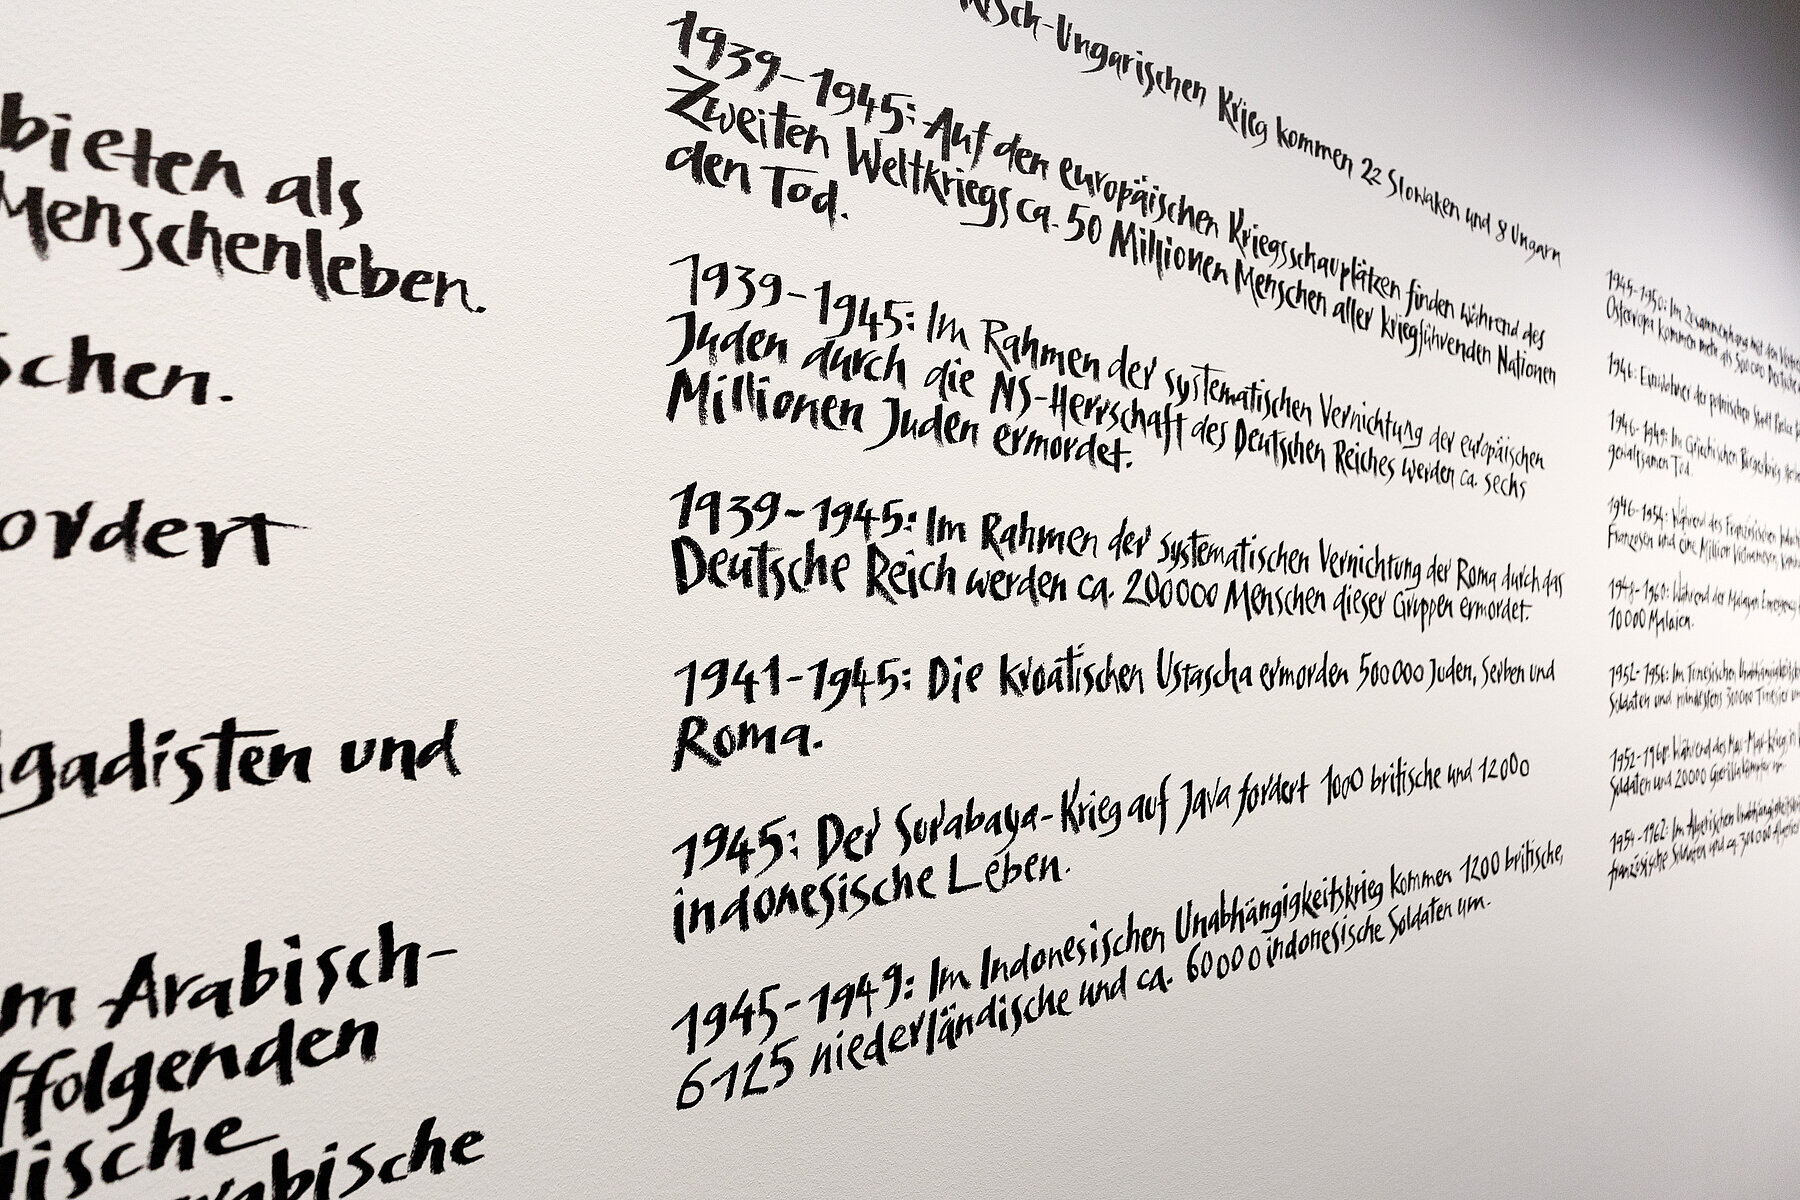 bieten als
Menschenleben.
schen.
ordert
gadisten und
m Arabisch-
ffolgenden
ische
rabische
isch-Ungarischen Krieg kommen 22 Slowaken und 8 Ungarn
1939–1945: Auf den europäischen Kriegsschauplätzen finden während des
Zweiten Weltkriegs ca. 50 Millionen Menschen aller kriegführenden Nationen
den Tod.
1939–1945: Im Rahmen der systematischen Vernichtung der europäischen
Juden durch die NS-Herrschaft des Deutschen Reiches werden ca. sechs
Millionen Juden ermordet.
1939–1945: Im Rahmen der systematischen Vernichtung der Roma durch das
Deutsche Reich werden ca. 200000 Menschen dieser Gruppen ermordet.
1941–1945: Die kroatischen Ustascha ermorden 500000 Juden, Serben und
Roma.
1945: Der Surabaya-Krieg auf Java fordert 1000 britische und 12000
indonesische Leben.
1945–1949: Im Indonesischen Unabhängigkeitskrieg kommen 1200 britische,
6125 niederländische und ca. 60000 indonesische Soldaten um.
1945–1950: Im Zusammenhang mit den
Osteuropa kommen mehr als 500000 Deutsche
1946: Einwohner der polnischen Stadt
1946–1949: Im Griechischen Bürgerkrieg
gewaltsamen Tod.
1946–1954: Während des Französischen
Franzosen und eine Million Vietnamesen
1948–1960: Während der Malayan Emergency
10000 Malaien.
1952–1956: Im Tunesischen
Soldaten und mindestens 300000 Tunesier
1952–1960: Während des Mau-Mau-Kriegs in
Soldaten und 20000 Guerillakämpfer um.
1954–1962: Im Algerischen
französische Soldaten und ca. 300000 Algerier